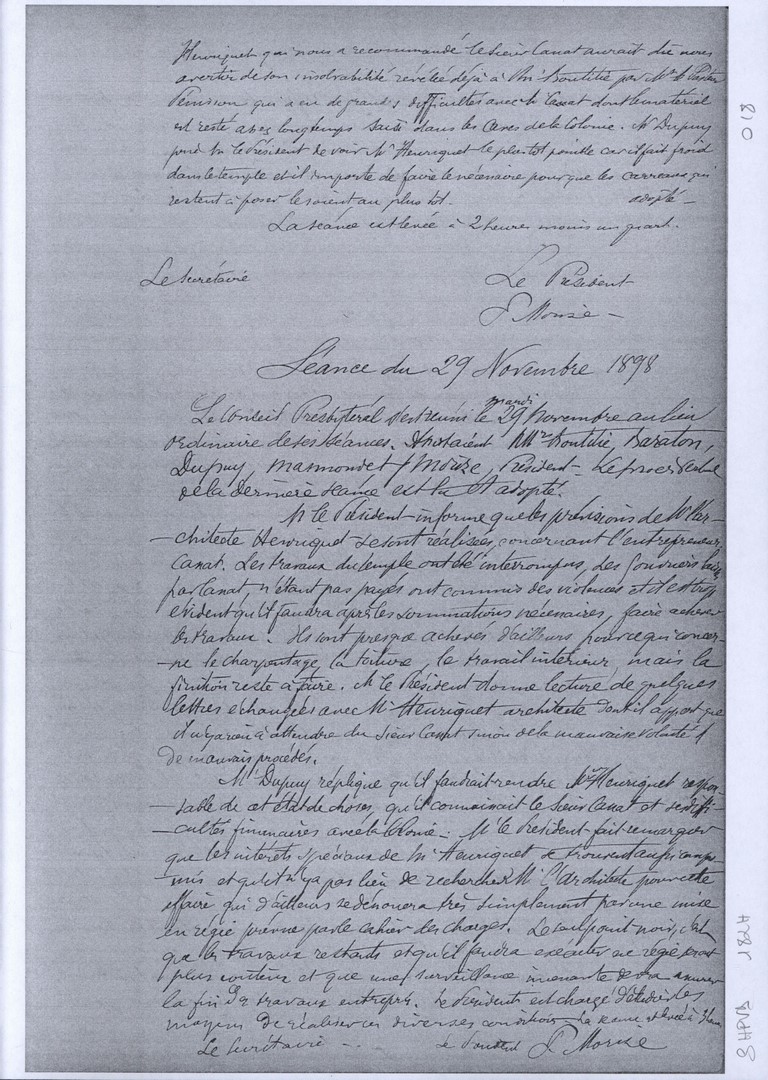 Henriquet qui nous a recommandé le sieur Canat aurait dû nous
avertir de son insolvabilité révélée déjà à Mr Boutitie par Mr le Pasteur
Pénisson qui a eu de grandes difficultés avec le Canat dont le matériel
est resté assez longtemps saisi dans les caves de la Colonie. Mr Dupuy
prie Mr le Président de voir Mr Henriquet le plus tôt possible car il fait froid
dans le temple et il importe de faire le nécessaire pour que les carreaux qui
restent à poser le soient au plus tôt. adopté —
La séance est levée à 2 heures moins un quart.
Le Secrétaire
Le Président
J Mouze —
Séance du 29 Novembre 1898
mardi
Le Conseil Presbytéral s'est réuni le 29 Novembre au lieu
ordinaire de ses séances. Assistaient Mrs Boutitie, Baraton,
Dupuy, Marmondet, J Mouze, Président — Le procès verbal
de la dernière séance est lu et adopté.
M le Président informe que les prévisions de Mr l'ar-
-chitecte Henriquet se sont réalisées, concernant l'entrepreneur
Canat. Les travaux du temple ont été interrompus, les ouvriers
par Canat, n'étant pas payés ont commis des violences et il est trop
évident qu'il faudra après les sommations nécessaires, faire achever
les travaux. Ils sont presque achevés d'ailleurs pour ce qui concer-
-ne le charpentage, la toiture, le travail intérieur, mais la
finition reste à faire. M le Président donne lecture de quelques
lettres échangées avec Mr Henriquet architecte dont il appert que
il n'y a rien à attendre du sieur Canat sinon de la mauvaise volonté et
de mauvais procédés.
Mr Dupuy réplique qu'il faudrait rendre Mr Henriquet respon-
-sable de cet état de choses, qu'il connaissait le sieur Canat et ses diffi-
-cultés financières avec la Colonie. Mr le Président fait remarquer
que les intérêts spéciaux de Mr Henriquet se trouvent aussi compro-
mis et qu'il n'y a pas lieu de rechercher Mr l'architecte pour cette
affaire qui d'ailleurs se dénouera très simplement par une mise
en régie prévue par le cahier des charges. Le seul point noir, c'est
que les travaux restants et qu'il faudra exécuter en régie seront
plus coûteux et que une surveillance devra assurer
la fin des travaux entrepris. Le Président est chargé d'étudier les
moyens de réaliser ces diverses conditions. La séance est levée à 3 heures
Le Secrétaire — Le Président J Mouze
018
SHPVD H281